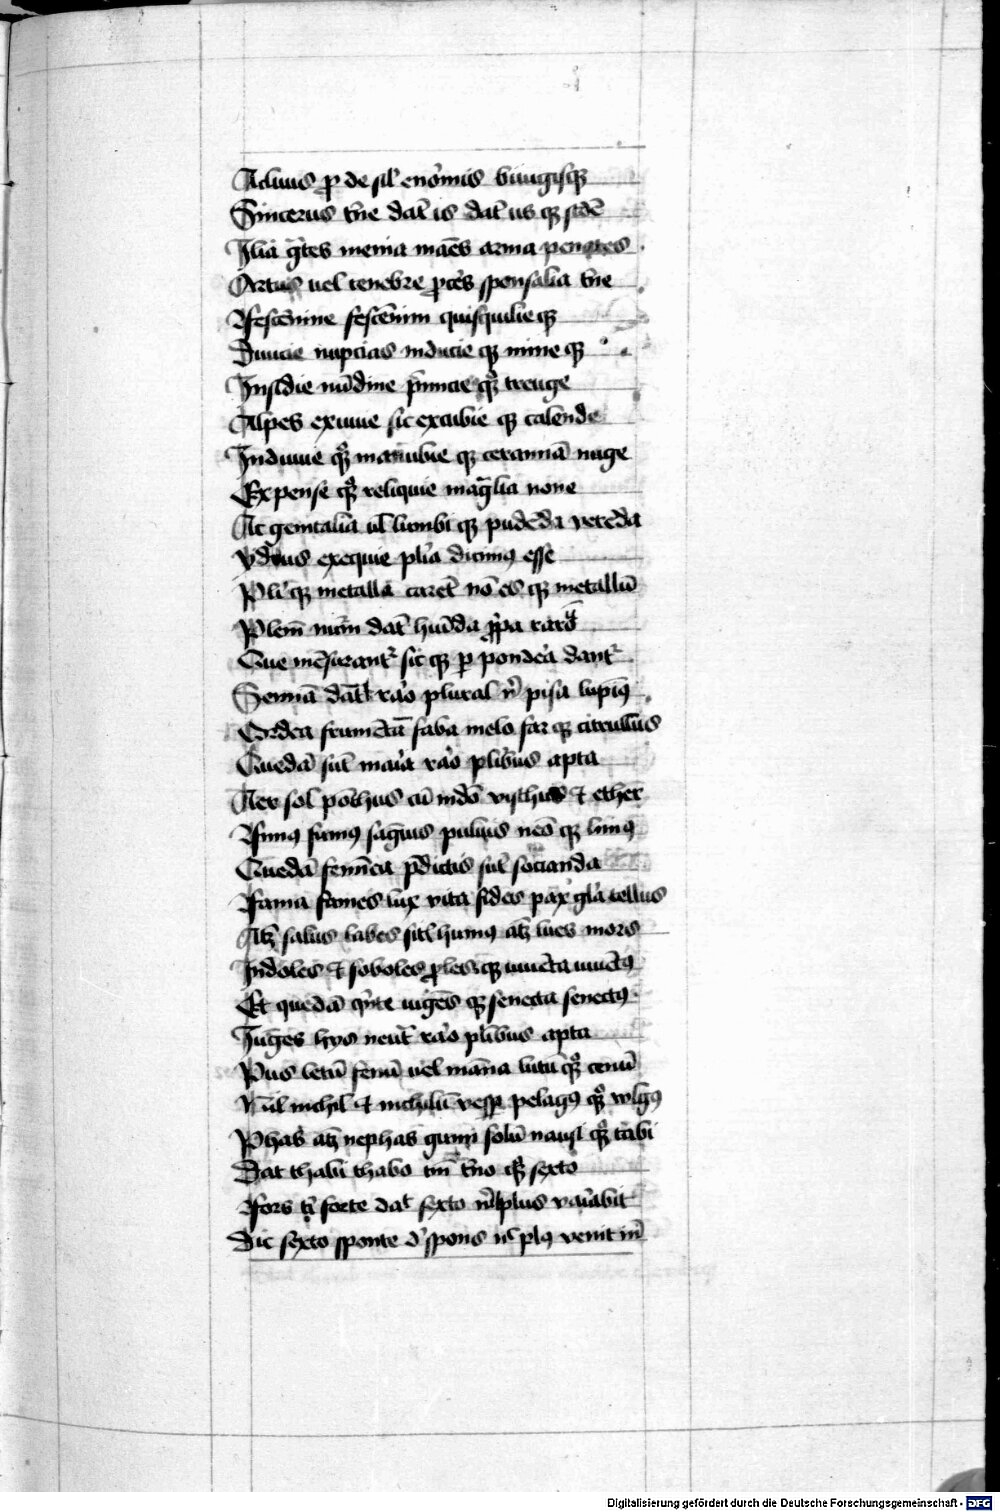 Acliuis ꝓ de sil̕ enoꝛ̃mis biiugisqꝫ
Sincerus t̕ne dat̄ is dat̄ us qꝫ stdē
Ilia g̃tes menia maēs arma penates
Artus uel tenebre ꝓcēs sponsalia t̕ne
Fescēnine fescēnim quisquilie qꝫ
Diuicie nupcias inducie qꝫ mine qꝫ
Insidie nūdine p̃micie qꝫ treuge
Alpes exiuue sic excubie qꝫ calende
Induuie qꝫ manubie qꝫ cerannā nuge
Expense qꝫ reliquie mag̃lia none
Ac genitalia ul̕ lumbi qꝫ pudēda verēda
Yduus exequie pl̕ia dicimꝯ esse
Pl̕i qꝫ metalla caret̄ nō es qꝫ metallū
Plem̄ nūm dat̄ humda ꝓpa raro
Que mēsurant᷑ sic qꝫ ꝑ pondēa dant᷑
Sennā dāt raꝰo plural n̕ pisa lupīꝯ
Ordea frumētū faba melo far qꝫ citrullus
Quedā sūt maīa raꝰo plibus apta
Aer sol pōthus cū mdō visthus et ether
Fimꝯ fumꝯ sāguis puluis neō qꝫ limꝯ
Quedā femīea p̄dictis sūt socianda
Fama fames lux vita fides pax gl̕a tellus
Atqꝫ salus labes sitꝭ humꝯ atqꝫ lues mors
Indoles et soboles ꝓles qꝫ iuuēta iuuētꝯ
Et quedā iūgēs qꝫ senecta senectꝯ
Iūges hijs neut̄ raꝰo plibus apta
Pus letū fenū uel māna lutū qꝫ cenū
Nil nichil et nichilū vesꝑ pelagꝯ qꝫ wlgꝯ
Phas atqꝫ nephas gūmi solū nausi qꝫ tabi
Dat thabi thabo tm̄ t̕no qꝫ sexto
Fors t̕i forte dat sexto n̕lplus vaīabit
Dic sexto sponte d̕ spons nꝉ plꝯ venit in̄
Digitalisierung gefördert durch die Deutsche Forschungsgemeinschaft - DFG